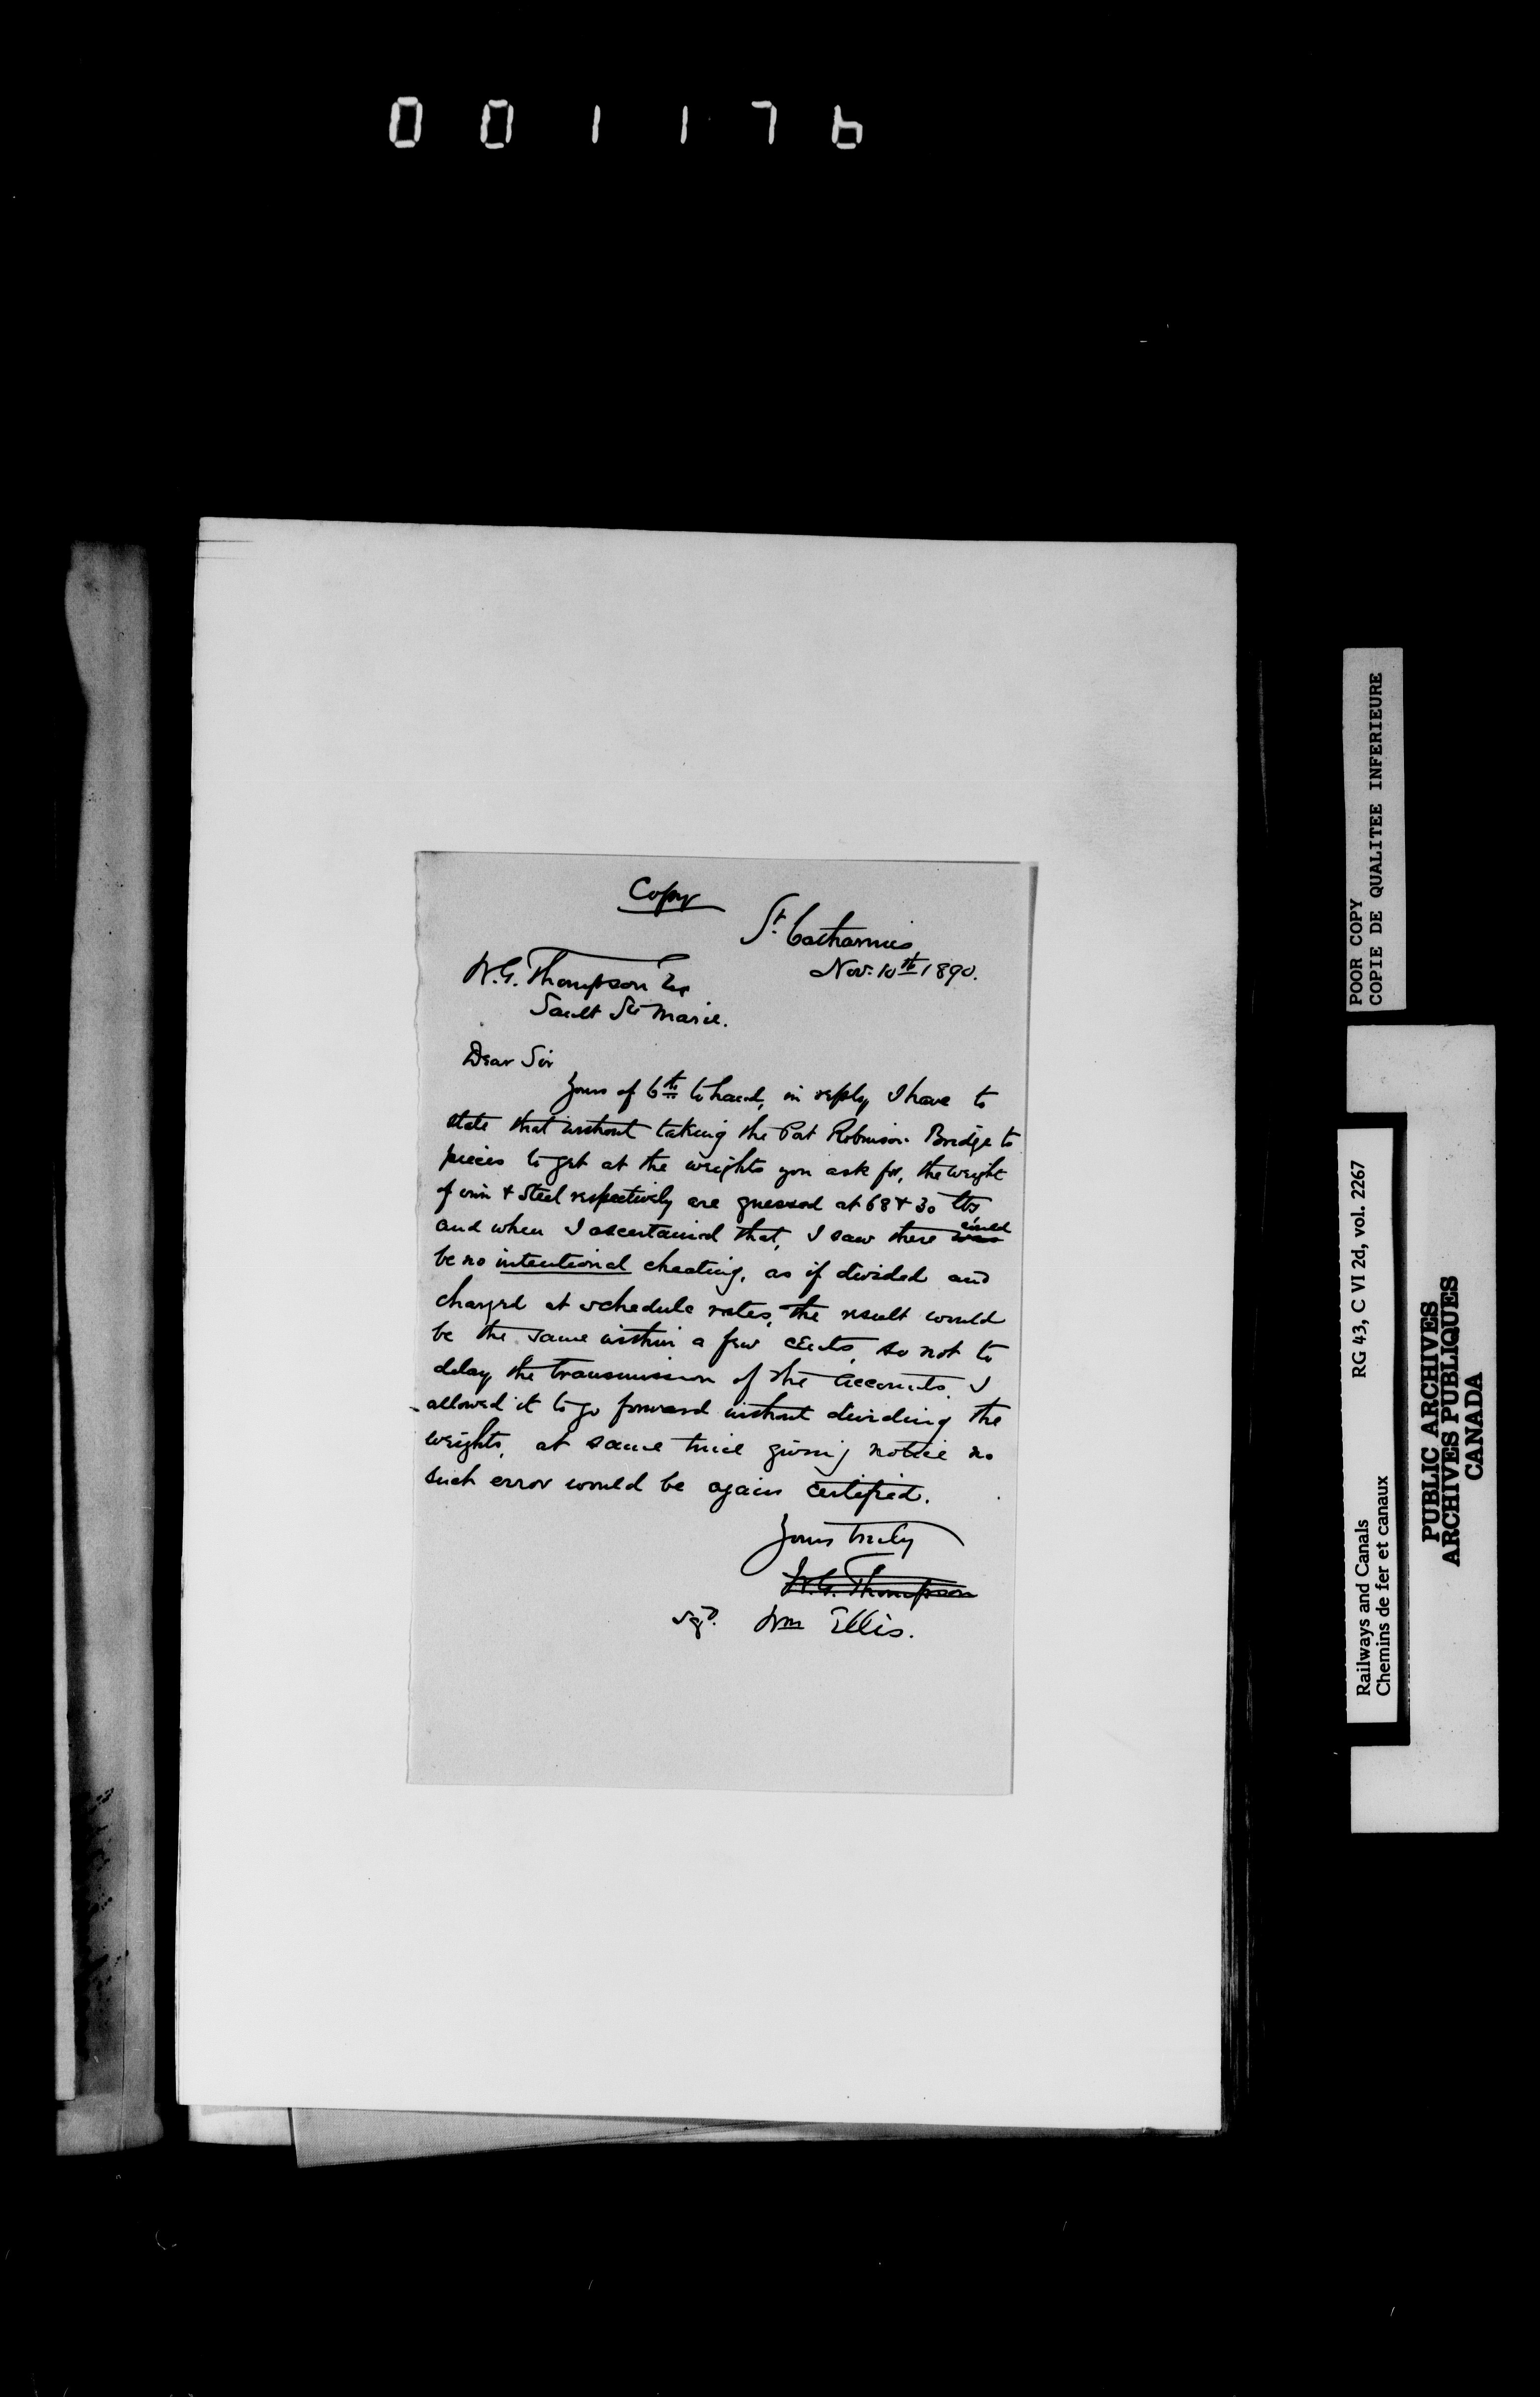 001176
Copy
St. Catharines
Nov. 10th 1890.
W.G. Thompson Esq
Sault Ste Marie.
Dear Sir
Yours of 6th to hand, in reply I have to
state that without taking the Port Robinson Bridge to
pieces to get at the weights you ask for, the weight
of iron & Steel respectively are guessed at 68 & 30 lbs,
and when I ascertained that, I saw there was could
be no intentional cheating, as if divided and
charged at schedule rates, the result would
be the same within a few cents, so not to
delay the transmission of the accounts, I
allowed it to go forward without dividing the
weights, at same time giving notice no
such error would be again certified.
Yours truly
W.G. Thompson
Sgd. Wm Ellis.
POOR COPY
COPIE DE QUALITEE INFERIEURE
RG 43, C VI 2d, vol. 2267
Railways and Canals
Chemins de fer et canaux
PUBLIC ARCHIVES
ARCHIVES PUBLIQUES
CANADA